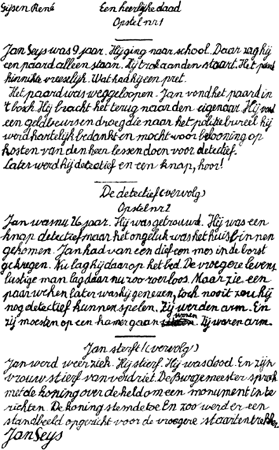 Sijsen René Een heerlijke daad
Opstel nr 1
Jan Seys was 9 jaar. Hij ging naar school. Daar zag hij
een paard alleen staan. Hij trok aan den staart. Het paard
hinnikte vreeselijk. Wat had hij een pret.
Het paard was weggeloopen. Jan vond het paard in
't bosch. Hij bracht het terug naar den eigenaar. Hij vond
een geldbeurs en droeg die naar het politiebureel hij
werd hartelijk bedankt en mocht voor belooning op
kosten van den heer lessen doen voor detectief.
Later werd hij detectief en een knap, hoor!
De detectief (vervolg)
Opstel nr 2
Jan was nu 26 jaar. Hij was getrouwd. Hij was een
knap detectief maar het ongeluk was het huis binnen
gekomen. Jan had van een dief een mes in de borst
gekregen. Nu lag hij daar op het bed. De vroegere levens
lustige man lag daar nu roerloos. Maar zie een
paar weken later was hij genezen, toch nooit zou hij
nog detectief kunnen spelen. Zij werden arm. En
zij moesten op een kamer gaan wonen. Zij waren arm.
Jan sterft! (vervolg)
Jan werd weer ziek. Hij stierf. Hij was dood. En zijn
vrouw stierf van verdriet. De Burgemeester sprak
met de koning over de held om een monument in te
richten. De koning stemde toe. En zoo werd er een
standbeeld opgericht voor de vroegere staartentrekker
Jan Seys